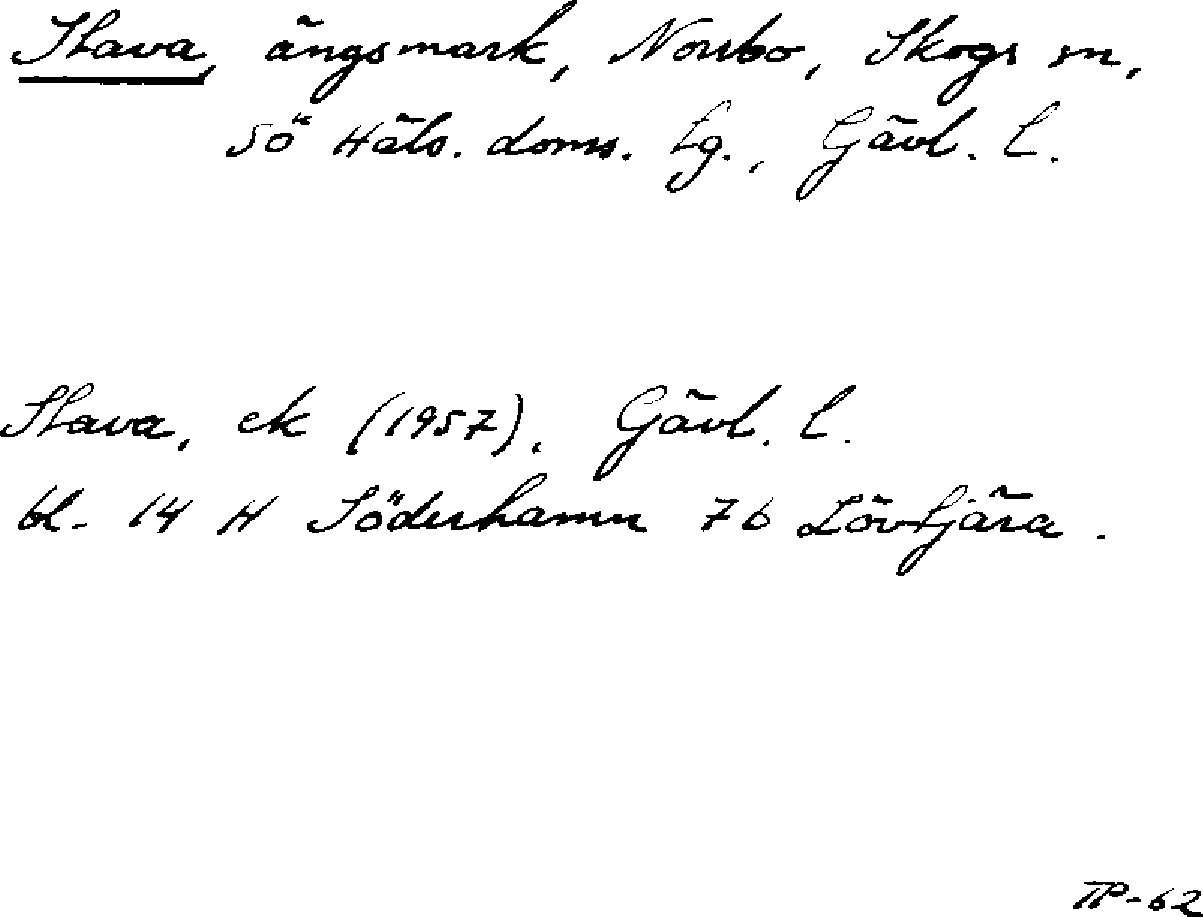 Slava, ängsmark, Norrbo, Skogs sn,
Sö Häls. doms. tg., Gävl. l.
Slava, ek (1957), Gävl. l.
bl. 14 H Söderhamn 7b Lövtjära.
TP-62